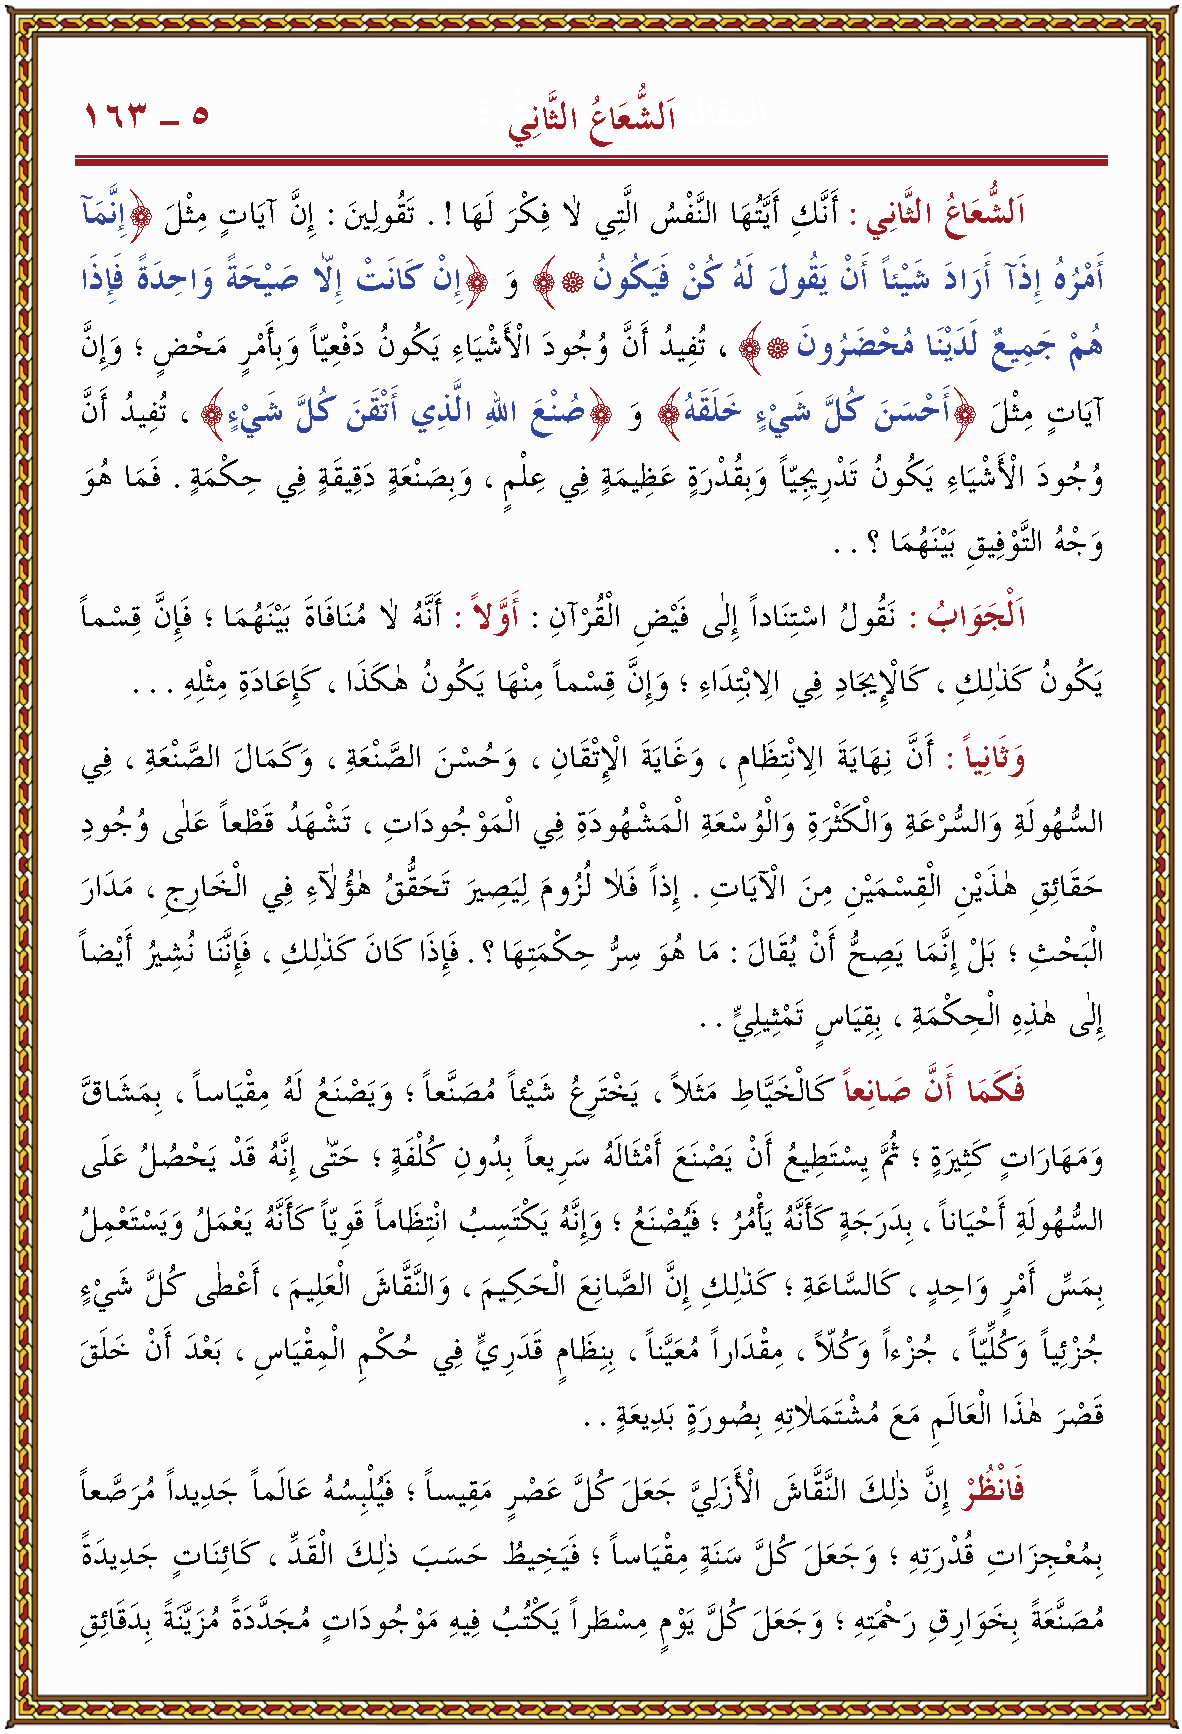 اَلشُّعَاعُ الثَّانِي ٥ ـ ١٦٣
اَلشُّعَاعُ الثَّانِي : أَنَّكِ أَيَّتُهَا النَّفْسُ الَّتِي لاٰ فِكْرَ لَهَا ! . تَقُولِينَ : إِنَّ آيَاتٍ مِثْلَ ﴿إِنَّمَآ
أَمْرُهُ إِذَآ أَرَادَ شَيْئاً أَنْ يَقُولَ لَهُ كُنْ فَيَكُونُ ۞﴾ وَ ﴿إِنْ كَانَتْ إِلاَّ صَيْحَةً وَاحِدَةً فَإِذَا
هُمْ جَمِيعٌ لَدَيْنَا مُحْضَرُونَ ۞﴾ ، تُفِيدُ أَنَّ وُجُودَ الْأَشْيَاءِ يَكُونُ دَفْعِيّاً وَبِأَمْرٍ مَحْضٍ ؛ وَإِنَّ
آيَاتٍ مِثْلَ ﴿أَحْسَنَ كُلَّ شَيْءٍ خَلَقَهُ﴾ وَ ﴿صُنْعَ اللهِ الَّذِي أَتْقَنَ كُلَّ شَيْءٍ﴾ ، تُفِيدُ أَنَّ
وُجُودَ الْأَشْيَاءِ يَكُونُ تَدْرِيجِيّاً وَبِقُدْرَةٍ عَظِيمَةٍ فِي عِلْمٍ ، وَبِصَنْعَةٍ دَقِيقَةٍ فِي حِكْمَةٍ . فَمَا هُوَ
وَجْهُ التَّوْفِيقِ بَيْنَهُمَا ؟ . .
اَلْجَوَابُ : نَقُولُ اسْتِنَاداً إِلَىٰ فَيْضِ الْقُرْآنِ : أَوَّلاً : أَنَّهُ لاٰ مُنَافَاةَ بَيْنَهُمَا ؛ فَإِنَّ قِسْماً
يَكُونُ كَذٰلِكَ ، كَالْإِيجَادِ فِي الِابْتِدَاءِ ؛ وَإِنَّ قِسْماً مِنْهَا يَكُونُ هٰكَذَا ، كَإِعَادَةِ مِثْلِهِ . . .
وَثَانِياً : أَنَّ نِهَايَةَ الِانْتِظَامِ ، وَغَايَةَ الْإِتْقَانِ ، وَحُسْنَ الصَّنْعَةِ ، وَكَمَالَ الصَّنْعَةِ ، فِي
السُّهُولَةِ وَالسُّرْعَةِ وَالْكَثْرَةِ وَالْوُسْعَةِ الْمَشْهُودَةِ فِي الْمَوْجُودَاتِ ، تَشْهَدُ قَطْعاً عَلَىٰ وُجُودِ
حَقَائِقِ هٰذَيْنِ الْقِسْمَيْنِ مِنَ الْآيَاتِ . إِذاً فَلاٰ لُزُومَ لِيَصِيرَ تَحَقُّقُ هٰؤُلاٰءِ فِي الْخَارِجِ ، مَدَارَ
الْبَحْثِ ؛ بَلْ إِنَّمَا يَصِحُّ أَنْ يُقَالَ : مَا هُوَ سِرُّ حِكْمَتِهَا ؟ . فَإِذَا كَانَ كَذٰلِكَ ، فَإِنَّنَا نُشِيرُ أَيْضاً
إِلَىٰ هٰذِهِ الْحِكْمَةِ ، بِقِيَاسٍ تَمْثِيلِيٍّ . .
فَكَمَا أَنَّ صَانِعاً كَالْخَيَّاطِ مَثَلاً ، يَخْتَرِعُ شَيْئاً مُصَنَّعاً ؛ وَيَصْنَعُ لَهُ مِقْيَاساً ، بِمَشَاقَّ
وَمَهَارَاتٍ كَثِيرَةٍ ؛ ثُمَّ يَسْتَطِيعُ أَنْ يَصْنَعَ أَمْثَالَهُ سَرِيعاً بِدُونِ كُلْفَةٍ ؛ حَتَّىٰ إِنَّهُ قَدْ يَحْصُلُ عَلَى
السُّهُولَةِ أَحْيَاناً ، بِدَرَجَةٍ كَأَنَّهُ يَأْمُرُ ؛ فَيُصْنَعُ ؛ وَإِنَّهُ يَكْتَسِبُ انْتِظَاماً قَوِيّاً كَأَنَّهُ يَعْمَلُ وَيَسْتَعْمِلُ
بِمَسِّ أَمْرٍ وَاحِدٍ ، كَالسَّاعَةِ ؛ كَذٰلِكَ إِنَّ الصَّانِعَ الْحَكِيمَ ، وَالنَّقَّاشَ الْعَلِيمَ ، أَعْطَىٰ كُلَّ شَيْءٍ
جُزْئِيّاً وَكُلِّيّاً ، جُزْءاً وَكُلّاً ، مِقْدَاراً مُعَيَّناً ، بِنِظَامٍ قَدَرِيٍّ فِي حُكْمِ الْمِقْيَاسِ ، بَعْدَ أَنْ خَلَقَ
قَصْرَ هٰذَا الْعَالَمِ مَعَ مُشْتَمَلاٰتِهِ بِصُورَةٍ بَدِيعَةٍ . .
فَانْظُرْ إِنَّ ذٰلِكَ النَّقَّاشَ الْأَزَلِيَّ جَعَلَ كُلَّ عَصْرٍ مَقِيساً ؛ فَيُلْبِسُهُ عَالَماً جَدِيداً مُرَصَّعاً
بِمُعْجِزَاتِ قُدْرَتِهِ ؛ وَجَعَلَ كُلَّ سَنَةٍ مِقْيَاساً ؛ فَيَخِيطُ حَسَبَ ذٰلِكَ الْقَدِّ ، كَائِنَاتٍ جَدِيدَةً
مُصَنَّعَةً بِخَوَارِقِ رَحْمَتِهِ ؛ وَجَعَلَ كُلَّ يَوْمٍ مِسْطَراً يَكْتُبُ فِيهِ مَوْجُودَاتٍ مُجَدَّدَةً مُزَيَّنَةً بِدَقَائِقِ